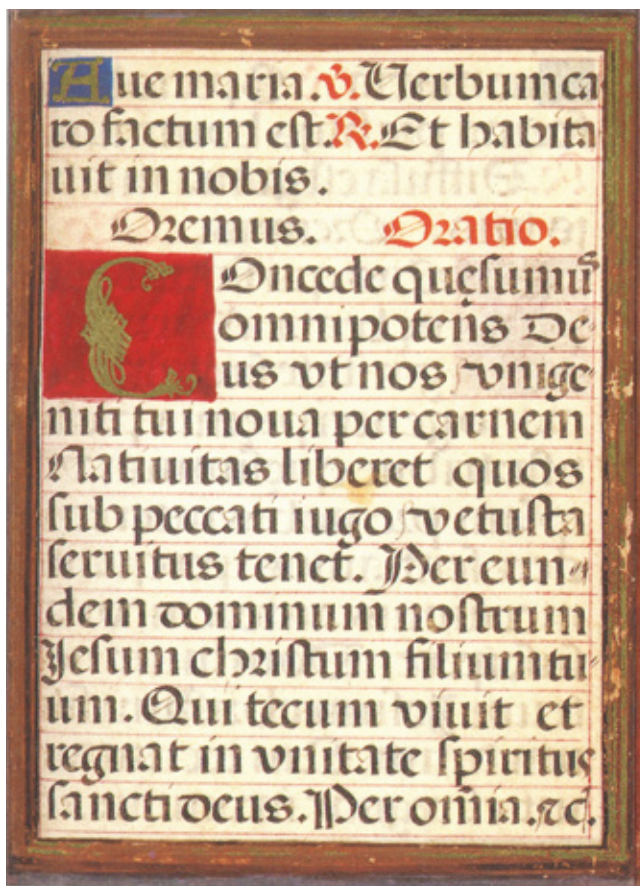 Aue maria. ℣. Uerbum ca
ro factum est. ℟. Et habita
uit in nobis.
Oremus. Oratio.
Concede quęsumus̃
omnipotens De-
us vt nos vnige-
niti tui noua per carnem
Natiuitas liberet quos
sub peccati iugo vetusta
seruitus tenet. Per eun-
dem dominum nostrum
Jesum christum filium tu-
um. Qui tecum viuit et
regnat in vnitate spiritus
sancti deus. Per om̄ia. ⁊c̃.